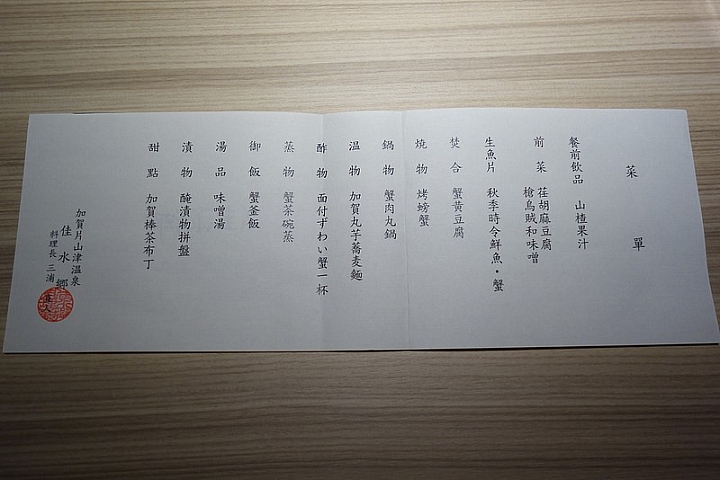 菜單
餐前飲品 山楂果汁
前菜 荏胡麻豆腐
槍烏賊和味噌
生魚片 秋季時令鮮魚・蟹
焚合 蟹黄豆腐
焼物 烤螃蟹
鍋物 蟹肉丸鍋
温物 加賀丸芋蕎麦麺
酢物 面付ずわい蟹一杯
蒸物 蟹茶碗蒸
御飯 蟹釜飯
湯品 味噌湯
漬物 醃漬物拼盤
甜點 加賀棒茶布丁
加賀片山津温泉
佳水郷
料理長 三浦